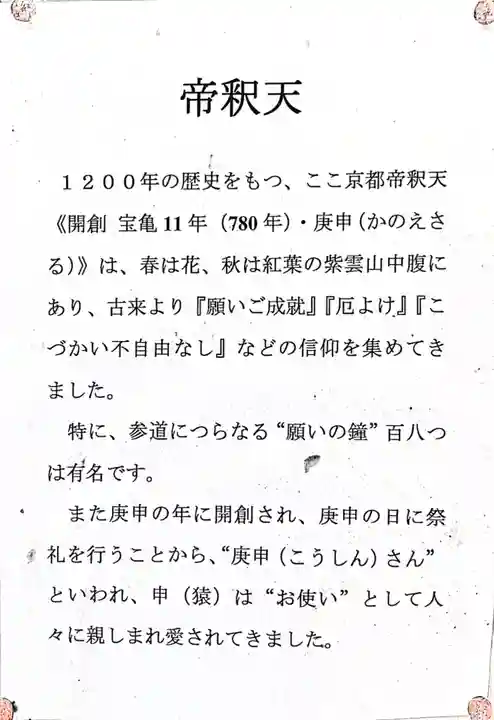 帝釈天
１２００年の歴史をもつ、ここ京都帝釈天
《開創 宝亀11年（780年）・庚申（かのえさ
る）》は、春は花、秋は紅葉の紫雲山中腹に
あり、古来より『願いご成就』『厄よけ』『こ
づかい不自由なし』などの信仰を集めてき
ました。
特に、参道につらなる“願いの鐘”百八つ
は有名です。
また庚申の年に開創され、庚申の日に祭
礼を行うことから、“庚申（こうしん）さん”
といわれ、申（猿）は“お使い”として人
々に親しまれ愛されてきました。